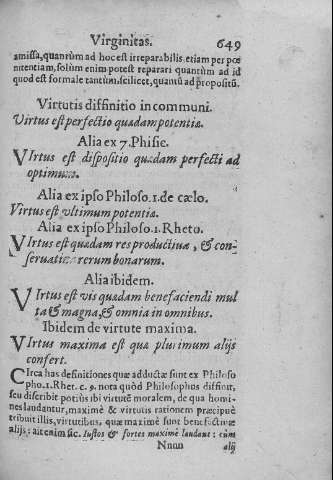 Virginitas. 649
amissa, quantùm ad hoc est irreparabilis etiam per pœ
nitentiam, solùm enim potest reparari quantùm ad id
quod est formale tantùm. scilicet, quantū ad propositū.
Virtutis diffinitio in communi.
Virtus est perfectio quædam potentiæ.
Alia ex 7. Phisic.
VIrtus est dispositio quædam perfecti ad
optimum.
Alia ex ipso Philoso. 1. de cælo.
Virtus est vltimum potentiæ.
Alia ex ipso Philoso. 1. Rheto.
VIrtus est quædam res productiua, & con-
seruatiua rerum bonarum.
Alia ibidem.
VIrtus est vis quædam benefaciendi mul
ta & magna, & omnia in omnibus.
Ibidem de virtute maxima.
VIrtus maxima est quæ plurimum alijs
confert.
CIrca has definitiones quæ adductæ sunt ex Philoso
pho. 1. Rhet. c. 9. nota quòd Philosophus diffinit,
seu discribit potiùs ibi virtutē moralem, de qua homi-
nes laudantur, maximè & virtutis rationem præcipuè
tribuit illis, virtutibus, quæ maximè sunt benefactiuæ
alijs: ait enim sic. Iustos & fortes maximè laudant: cùm
Nnnn alij